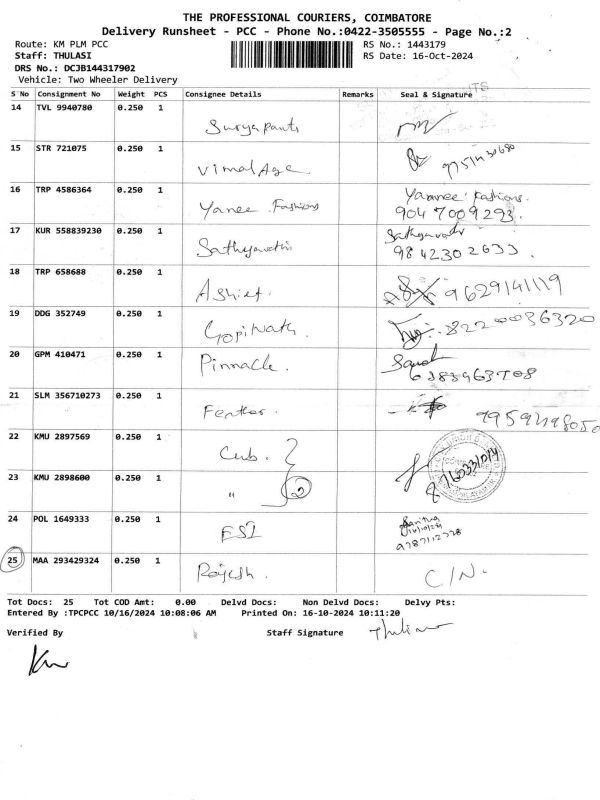 THE PROFESSIONAL COURIERS, COIMBATORE
Delivery Runsheet - PCC - Phone No.:0422-3505555 - Page No.:2
Route: KM PLM PCC RS No.: 1443179
Staff: THULASI RS Date: 16-Oct-2024
DRS No.: DCJB144317902
Vehicle: Two Wheeler Delivery
S No Consignment No Weight PCS Consignee Details Remarks Seal & Signature
14 TVL 9940780 0.250 1
15 STR 721075 0.250 1 Vimal Age
16 TRP 4586364 0.250 1 Yanee Fashions Yaanee Fashions
9047009293.
17 KUR 558839230 0.250 1 Sathyavathi Sathyavathi
9842302633.
18 TRP 658688 0.250 1 9629141119
19 DDG 352749 0.250 1 Gopinath. 8220036320
20 GPM 410471 0.250 1 Pinnacle.
6383963708
21 SLM 356710273 0.250 1
22 KMU 2897569 0.250 1 Cub.
23 KMU 2898600 0.250 1 "
24 POL 1649333 0.250 1 ESI
25 MAA 293429324 0.250 1 Rajesh. C/N.
Tot Docs: 25 Tot COD Amt: 0.00 Delvd Docs: Non Delvd Docs: Delvy Pts:
Entered By :TPCPCC 10/16/2024 10:08:06 AM Printed On: 16-10-2024 10:11:20
Verified By Staff Signature